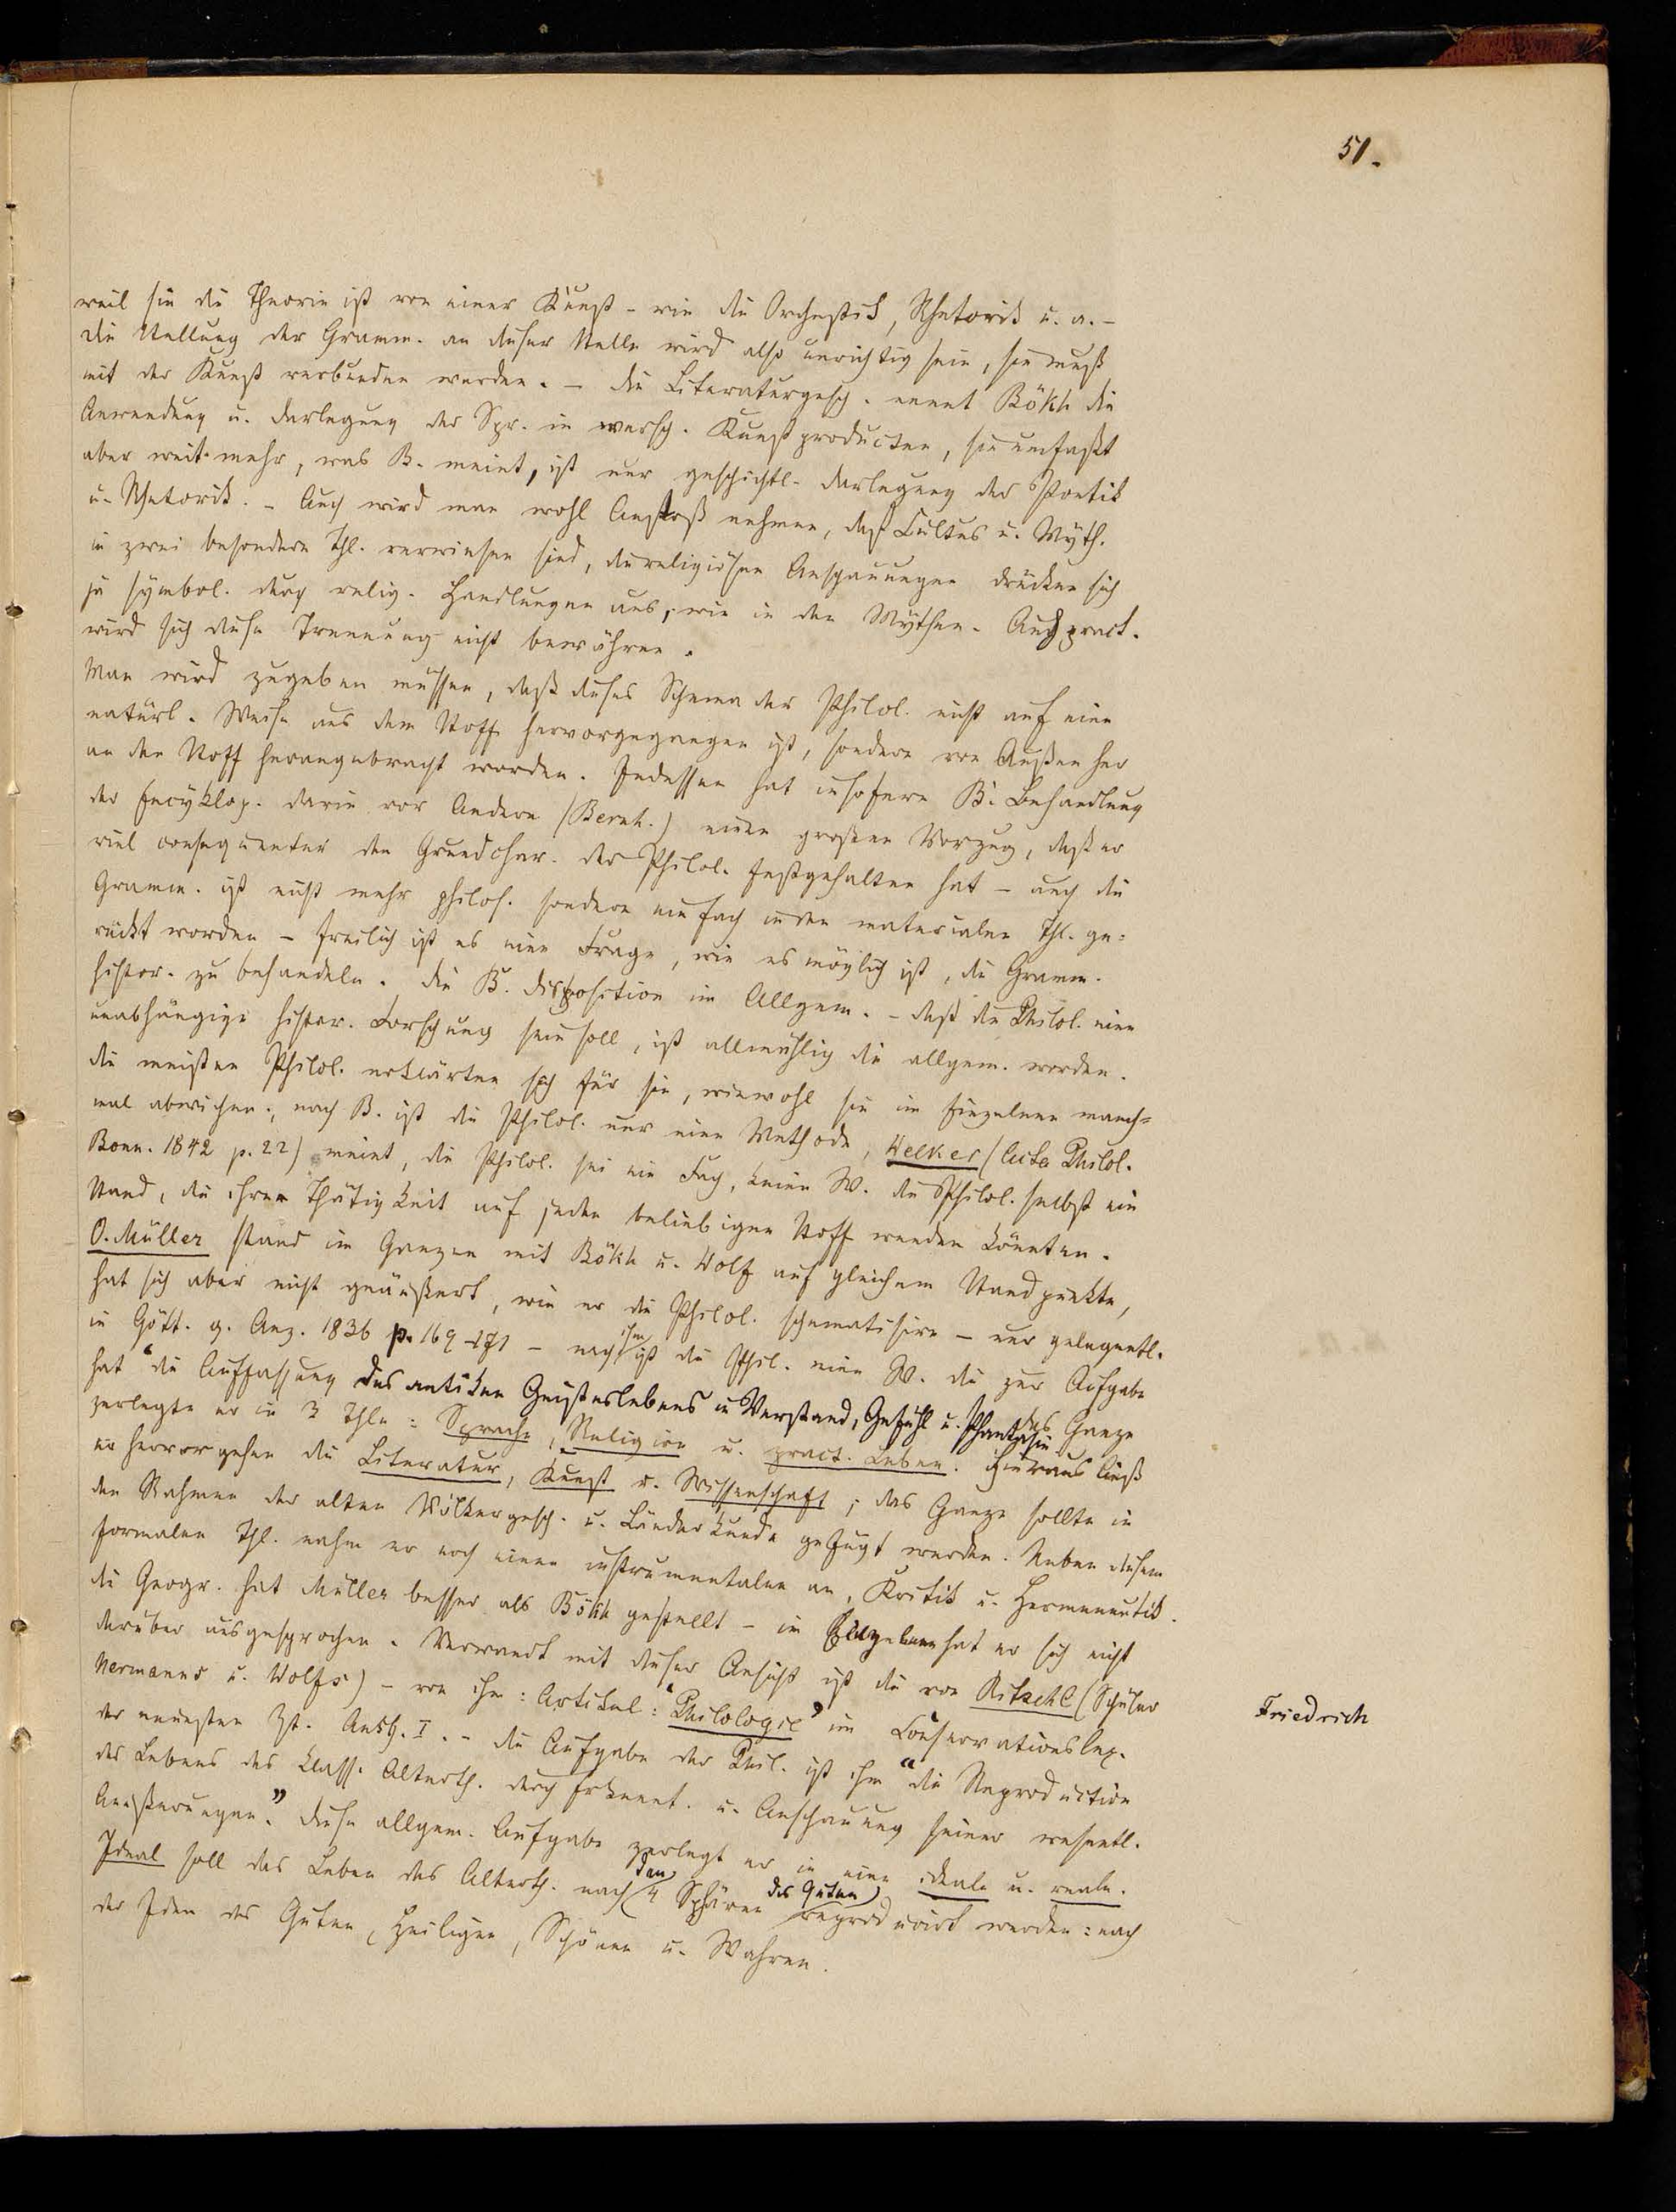 51.
weil sie die Theorie ist von einer Kunst - wie die Orchestik, Rhetorik u. a. -
die Stellung der Gramm. an dieser Stelle wird also unrichtig sein, sie muß
mit der Kunst verbunden werden. - die Literaturgesch. nennt Bökh die
Anwendung u. Darlegung der Spr. in versch. Kunstproducten, sie umfaßt
aber weit mehr, was B. meint, ist nur geschichtl. Darlegung der Poetik
u. Rhetorik. - Auch wird man wohl Anstoß nehmen, daß Cultus u. Myth.
in zwei besondere Thl. verwiesen sind, die religiösen Anschauungen drücken sich
ja symbol. durch relig. Handlungen aus, wie in den Mythen. Auch pract.
wird sich diese Trennung nicht bewähren.
Man wird zugeben müssen, daß dieses Schema der Philol. nicht auf eine
natürl. Weise aus dem Stoff hervorgegangen ist, sondern von Außen her
an den Stoff herangebracht worden. Indessen hat insofern B's Behandlung
der Encyklop. darin vor Andern (Bernh.) einen großen Vorzug, daß er
viel consequenter den Grundchar. der Philol. festgehalten hat - auch die
Gramm. ist nicht mehr philos. sondern einfach in den materialen Thl. ge=
rückt worden - freilich ist es eine Frage, wie es möglich ist, die Gramm.
histor. zu behandeln. Die B. Disposition im Allgem. - daß die Philol. eine
unabhängige histor. Forschung sein soll, ist allmählig die allgem. worden.
die meisten Philol. erklärten sich für sie, wiewohl sie im Einzelnen manch=
mal abwichen; nach B. ist die Philol. nur eine Methode, Welker (Acta Philol.
Bonn. 1842 p. 22) meint, die Philol. sei ein Fach, keine W. die Philol. selbst ein
Stand, die ihre Thätigkeit auf jeden beliebigen Stoff wenden könnten.
O. Müller stand im Ganzen mit Bökh u. Wolf auf gleichem Standpunkte,
hat sich aber nicht geäußert, wie er die Philol. schematisire - nur gelegentl.
in Gött. g. Anz. 1836 p. 169-171 - nach ihm ist die Phil. eine W. die zur Aufgabe
hat "die Auffassung des antiken Geisteslebens in Verstand, Gefühl u. Phantasie das Ganze
zerlegte er in 3 Thle: Sprache, Religion u. pract. Leben. Hieraus ließ
er hervorgehen die Literatur, Kunst u. Wissenschaft; das Ganze sollte in
den Rahmen der alten Völkergesch. u. Länderkunde gefügt werden. Neben diesem
formalen Thl. nahm er noch einen instrumentalen an, Kritik u. Hermeneutik.
die Geogr. hat Müller besser als Bökh gestellt - im Einzelnen hat er sich nicht
darüber ausgesprochen. Verwandt mit dieser Ansicht ist die von Ritschl (Schüler
Hermanns u. Wolfs) - von ihm: Artikel: "Philologie" im Conservationslex.
Friedrich
der neuesten Zt. Ausg. I. - die Aufgabe der Phil. ist ihm "die Reproduction
des Lebens des klass. Alterth. durch Erkennt. u. Anschauung seiner wesentl.
Aeußerungen." diese allgem. Aufgabe zerlegt er in eine ideale u. reale.
Ideal soll das Leben des Alterth. nach den 4 Sphären des Guten reproducirt werden: nach
der Idee des Guten, Heiligen, Schönen u. Wahren.